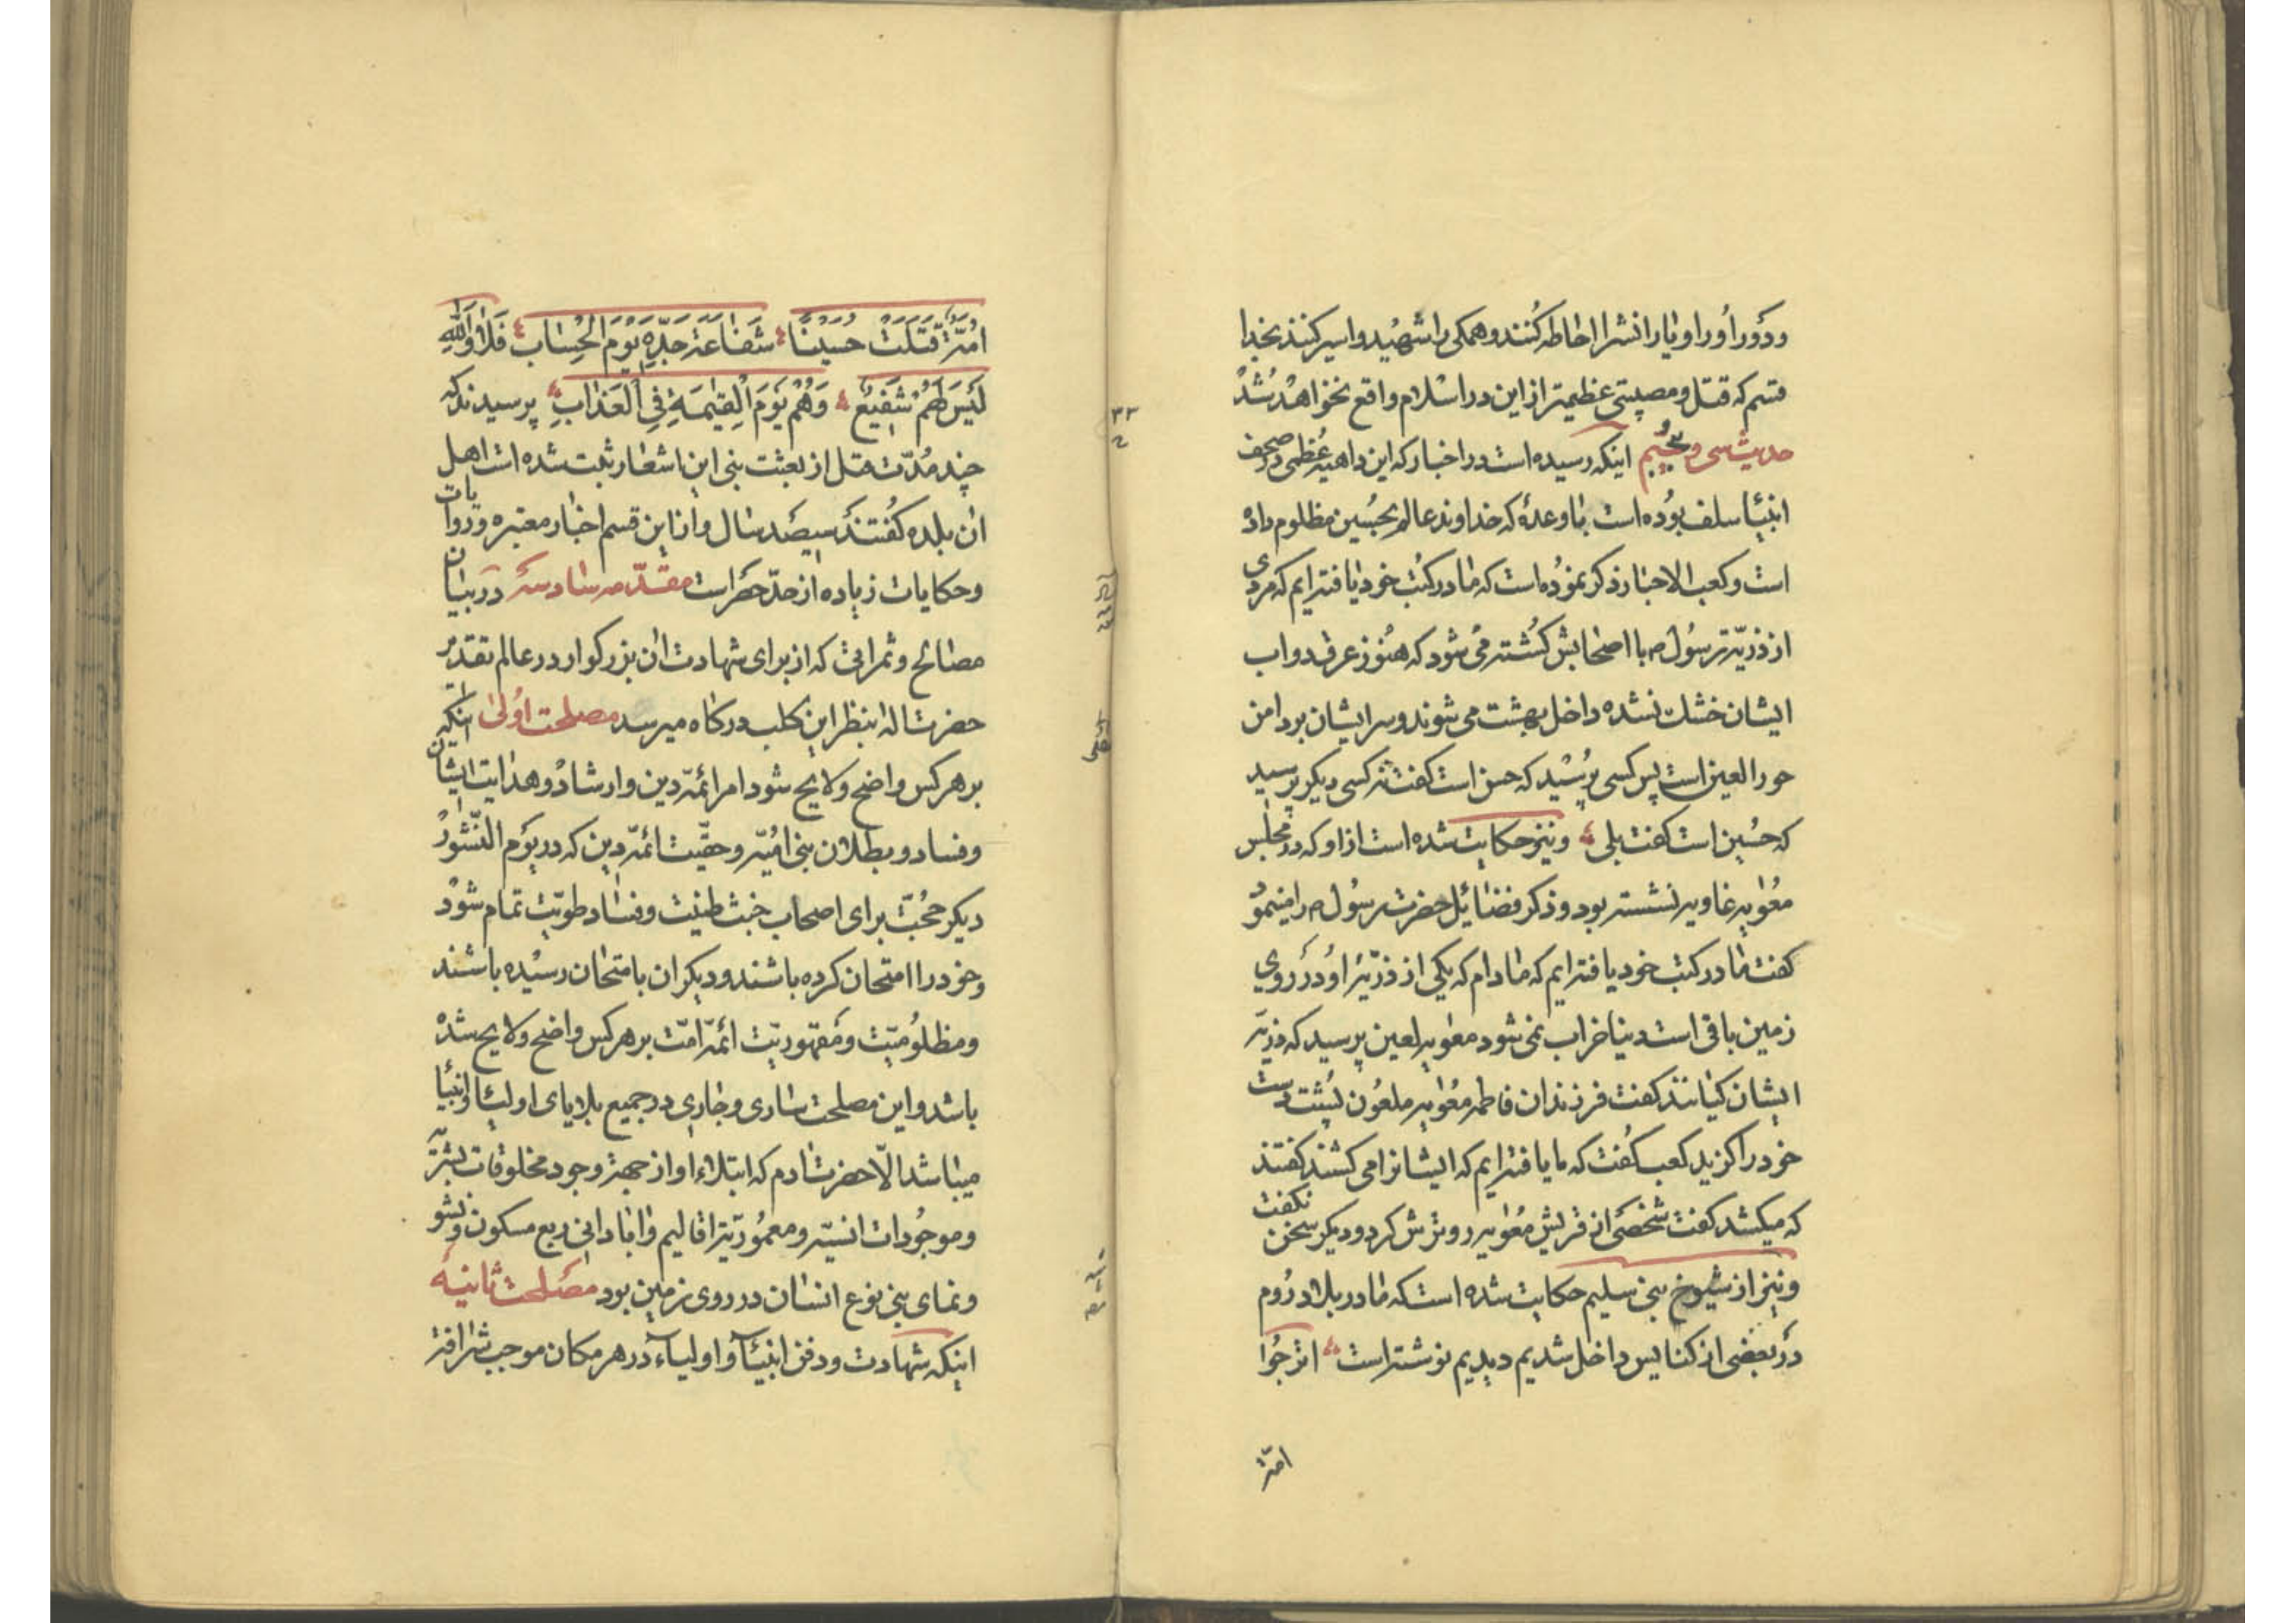 ودَورا ورا و یارانش را احاطه کُنند و همکی را شهید و اسیر کنند بخدا
قسم که قتل و مصیبتی عظیمتر از این در اسلام واقع نخواهد شد
حدیث سی و پنجُم اینکه رسیده است در اخبار که این داهیهٔ عُظمی در صحف
انبیا سلف بُوده است با وعدهٔ که خداوند عالم بحُسین مظلوم داده
است و کعب الاحبار ذکر نموُده است که ما در کتُب خود یافته‌ایم که مردی
از ذریّت رسُول ص با اصحابش کُشته می شود که هنُوز عرق دواب
ایشان خشک نشده داخل بهشت می شوند و سر ایشان بر دامن
حور العین است پس کسی پرُسید که حسن است کفت نه کسی دیکر پرسید
که حُسین است کفت بلی و نیز حکایت شده است از او که در مجلس
معُویه غاویه نشسته بود و ذکر فضائل حضرت رسُول ص را مینموُد
کفت ما در کتب خود یافته ایم که مادام که یکی از ذرّیّه او دَر روی
زمین باقی است دنیا خراب نمی شود معویه لعین پرسید که ذریّه
ایشان کیانند کفت فرزندان فاطمه معُویه ملعُون پُشت دست
خود را کزید کعب کفُت که ما یافته ایم که ایشانرا می کشند کفتند
که میکشد کفت شخصَی از قریش معُویه رو ترش کرد و دیکر سخن نکفت
و نیز از شیُوخ بنی سلیم حکایت شده است که ما در بلاد رُوم
دَر بعضی از کنایس داخل شدیم دیدیم نوشته است اترجُوا
امّة
امُّةٌ قَتَلَتْ حُسَیْنًا شَفاعَةَ جَدِّهِ یَوْمَ الْحِسابِ فَلاٰ وَاللّٰهِ
لَیْسَ لَهُمْ شَفیعٌ وَهُمْ یَوْمَ الْقِیٰمَةِ فِی الْعَذابِ پرسیدند که
چند مُدّت قبل از بعثت نبی این اشعار ثبت شده است اهل
ان بلده کفُتند سیصَد سال و از این قسم اخبار معتبره و روایات
و حکایات زیاده از حدّ حصَر است مقدّمه سادسَه در بیان
مصالح و ثمراتی که از برای شهادت ان بزرکوار در عالم تقدیر
حضرت اله بنظر این کلب درکاه میرسد مصلحت اوُلیٰ اینکه
بر هر کس واضح و لایح شود امر ائمّه دین و ارشاد و هدایت ایشان
و فساد و بطلان بنی امُیّه و حقّیت ائمّه دین که در یوم النّشُور
دیکر حجُّت برای اصحاب خبث طینت و فساد طویّت تمام شوُد
و خود را امتحان کرده باشند و دیکران بامتحان رسیُده باشند
و مظلُومیّت و مقَهوریّت ائمّه امّت بر هر کس واضح و لایح شده
باشد و این مصلحت ساری و جاری در جمیع بلایای اولیا و انبیا
میباشد الّا حضرت ادم که ابتلاء او از جهة وجود مخلوقات بشریّه
و موجُودات انسیّه و معمُوریّت اقالیم و ابادانی ربع مسکون و نشو
و نمای بنی نوع انسان در روی زمین بود مصَلحت ثانیَه
اینکه شهادت و دفن انبیآء و اولیآء در هر مکان موجب شرافة